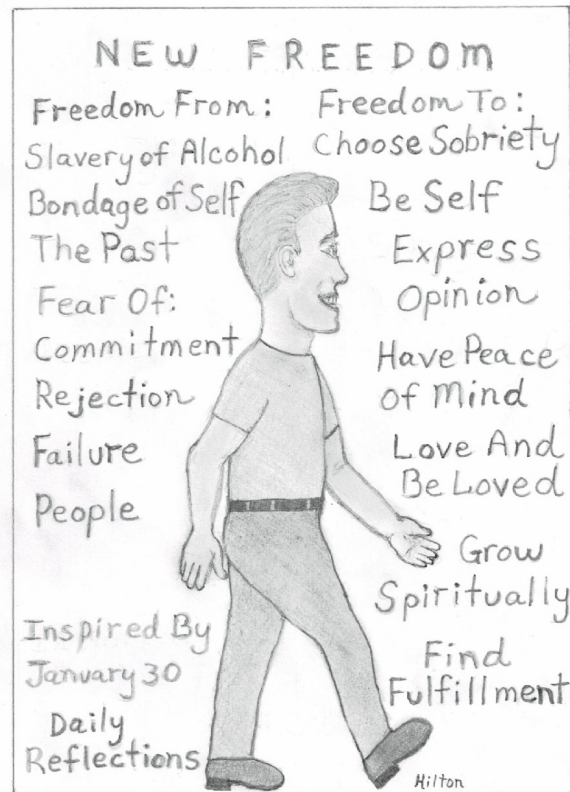 NEW FREEDOM
Freedom From:
Slavery of Alcohol
Bondage of Self
The Past
Fear Of:
Commitment
Rejection
Failure
People
Inspired By
January 30
Daily
Reflections
Freedom To:
Choose Sobriety
Be Self
Express
Opinion
Have Peace
of Mind
Love And
Be Loved
Grow
Spiritually
Find
Fulfillment
Hilton